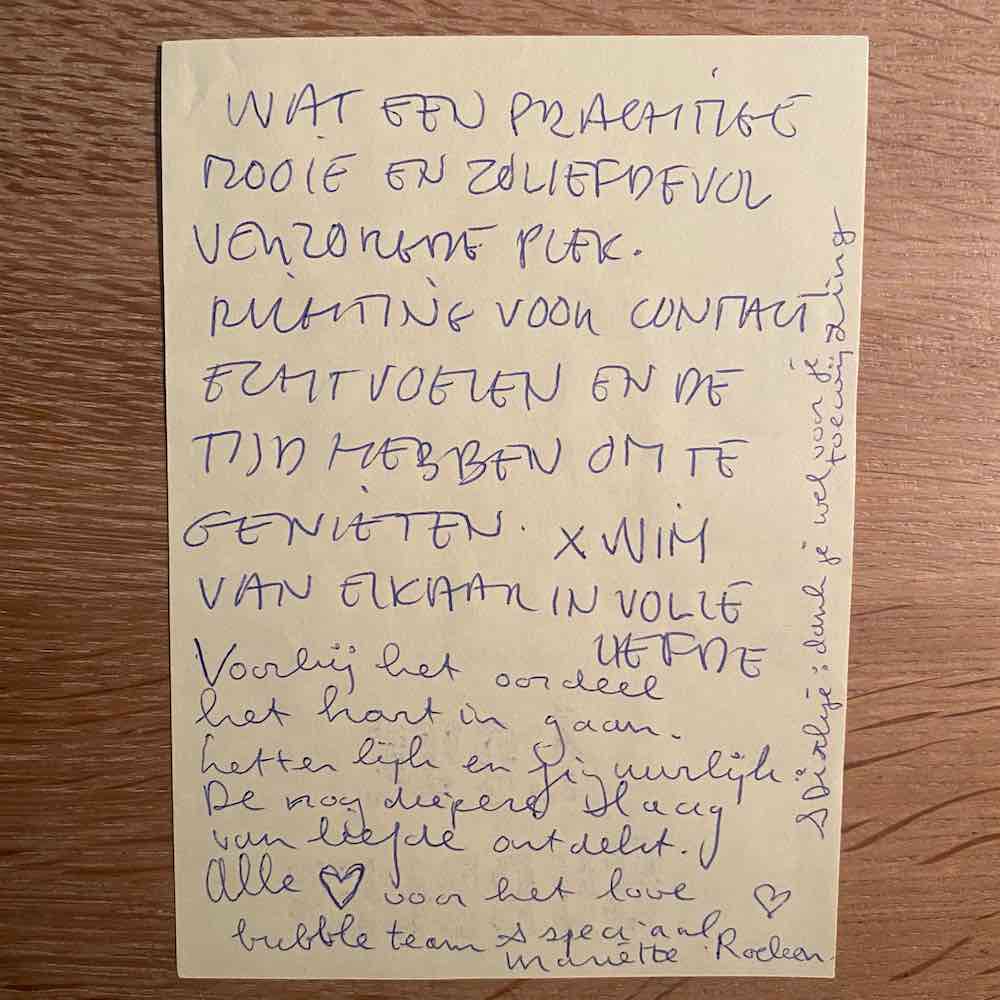 WAT EEN PRACHTIGE
MOOIE EN ZO LIEFDEVOL
VERZORGDE PLEK.
RICHTING VOOR CONTACT
ECHT VOELEN EN DE
TIJD HEBBEN OM TE
GENIETEN. X WIM
VAN ELKAAR IN VOLLE
LIEFDE
Voorbij het oordeel
het hart in gaan.
Letterlijk en figuurlijk
De nog diepere laag
van liefde ontdekt.
Alle ♡ voor het love ♡
bubble team & speciaal
Mariëtte Roeleen
& Dirkje: dank je wel voor je
toewijding